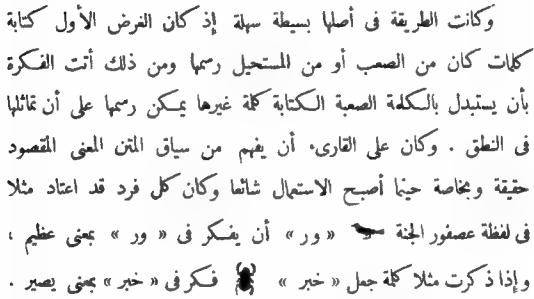 وكانت الطريقة فى أصلها بسيطة سهلة إذ كان الغرض الأول كتابة
كلمات كان من الصعب أو من المستحيل رسمها ومن ذلك أتت الفكرة
بأن يستبدل بالكلمة الصعبة الكتابة كلمة غيرها يمكن رسمها على أن تماثلها
فى النطق . وكان على القارىء أن يفهم من سياق المتن المعنى المقصود
حقيقة وبخاصة حينما أصبح الاستعمال شائعا وكان كل فرد قد اعتاد مثلا
فى لفظة عصفور الجنة « ور » أن يفكر فى « ور » بمعنى عظيم ،
وإذا ذكرت مثلا كلمة جعل « خبر » فكر فى « خبر » بمعنى يصير .